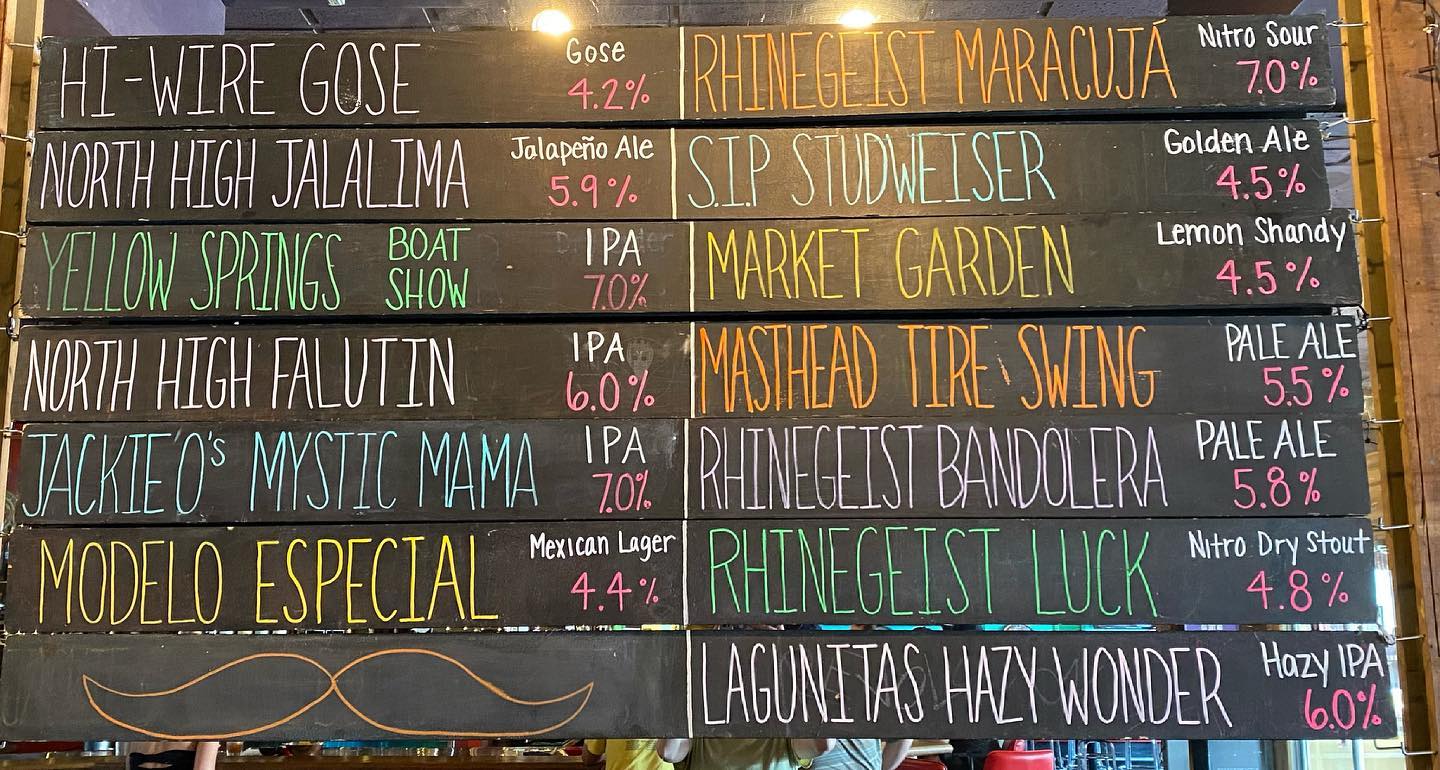 HI-WIRE GOSE Gose
4.2%
NORTH HIGH JALALIMA Jalapeño Ale
5.9%
YELLOW SPRINGS BOAT SHOW IPA
7.0%
NORTH HIGH FALUTIN IPA
6.0%
JACKIE O's MYSTIC MAMA IPA
7.0%
MODELO ESPECIAL Mexican Lager
4.4%
RHINEGEIST MARACUJÁ Nitro Sour
7.0%
S.I.P STUDWEISER Golden Ale
4.5%
MARKET GARDEN Lemon Shandy
4.5%
MASTHEAD TIRE SWING PALE ALE
5.5%
RHINEGEIST BANDOLERA PALE ALE
5.8%
RHINEGEIST LUCK Nitro Dry Stout
4.8%
LAGUNITAS HAZY WONDER Hazy IPA
6.0%